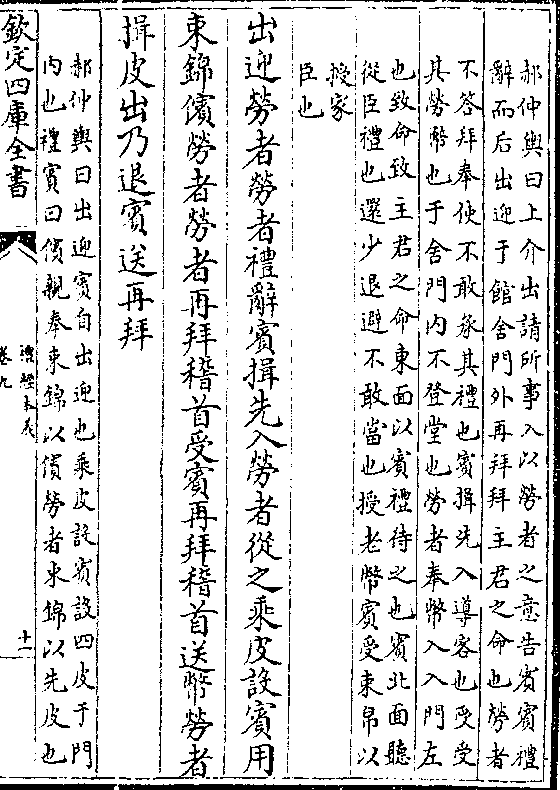 郝仲輿曰上介出請所事入以勞者之意告賓賓禮
辭而后出迎于館舍門外再拜拜主君之命也勞者
不答拜奉使不敢承其禮也賓揖先入導客也受受
其勞幣也于舍門內不登堂也勞者奉幣入入門左
也致命致主君之命東面以賓禮待之也賓北面聽
從臣禮也還少退避不敢當也授老幣賓受束帛以
授家
臣也
出迎勞者勞者禮辭賓揖先入勞者從之乘皮設賓用
束錦儐勞者勞者再拜稽首受賓再拜稽首送幣勞者
揖皮出乃退賓送再拜
郝仲輿曰出迎賓自出迎也乘皮設賓設四皮于門
內也禮賓曰儐親奉束錦以儐勞者束錦以先皮也
欽定四庫全書
禮經本義
卷九
十一